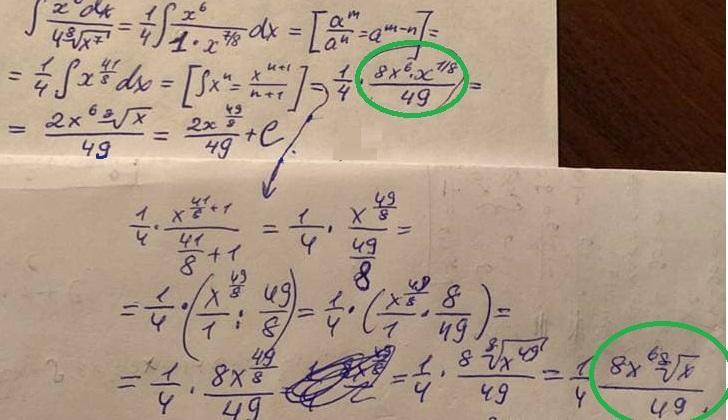 ∫ x⁶dx / 4⁸√x⁷ = 1/4 ∫ x⁶ / 1·x^(7/8) dx = [a^m / a^n = a^(m-n)] =
= 1/4 ∫ x^(41/8) dx = [∫x^n = x^(n+1) / n+1] = 1/4 · 8x⁶·x^(1/8) / 49 =
= 2x⁶ ⁸√x / 49 = 2x^(49/8) / 49 + C.
1/4 · x^(41/8+1) / (41/8+1) = 1/4 · x^(49/8) / (49/8) =
= 1/4 · (x^(49/8) / 1 : 49/8) = 1/4 · (x^(49/8) / 1 · 8/49) =
= 1/4 · 8x^(49/8) / 49 = 1/4 · 8 ⁸√x⁴⁹ / 49 = 1/4 8x⁶ ⁸√x / 49,